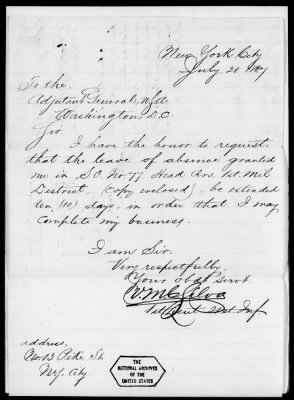 New York City
July 21 1867
To the
Adjutant General, U.S.A
Washington, D.C.
Sir
I have the honor to request
that the leave of absence granted
me in S.O. No. 77 Head Qrs. 1st. Mil
District, (Copy enclosed) be extended
ten (10) days, in order that I may
complete my business.
I am Sir,
Very respectfully
Your obdt Servt
De Silva
1st Lieut 21st Inf
address,
No 13 Pike St
N.Y. City.
THE
NATIONAL ARCHIVES
OF THE
UNITED STATES